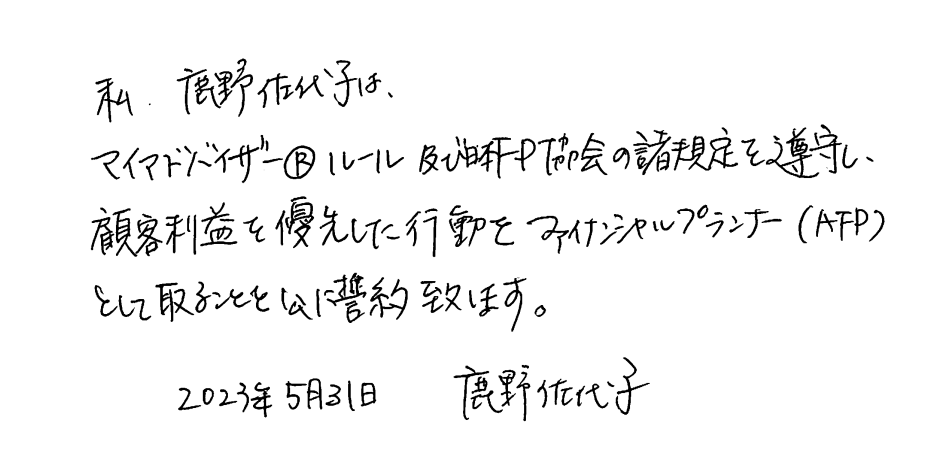 私、鹿野佐代子は、
マイアドバイザー®ルール及び日本FP協会の諸規定を遵守し、
顧客利益を優先した行動をファイナンシャルプランナー(AFP)
として取ることを公に誓約致します。
2023年5月31日 鹿野佐代子